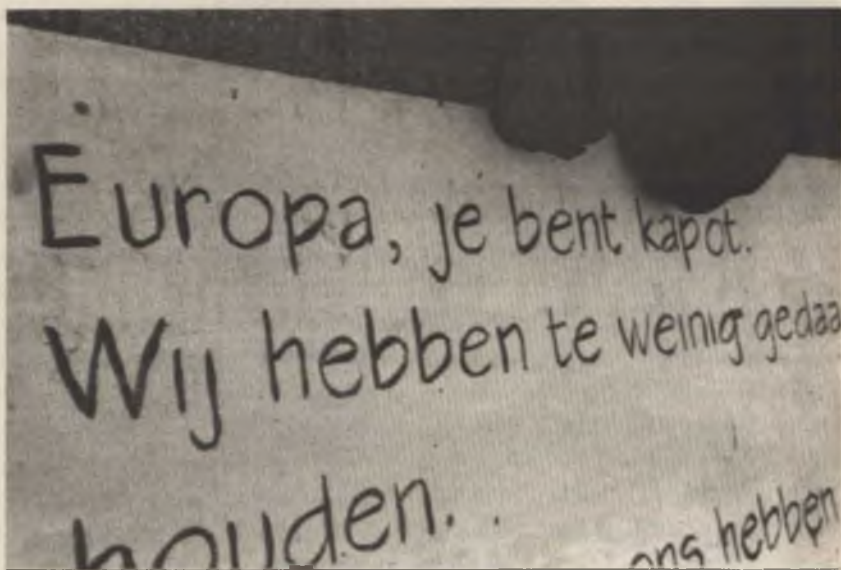 Europa, je bent kapot.
Wij hebben te weinig gedaa
houden. .
ons hebben